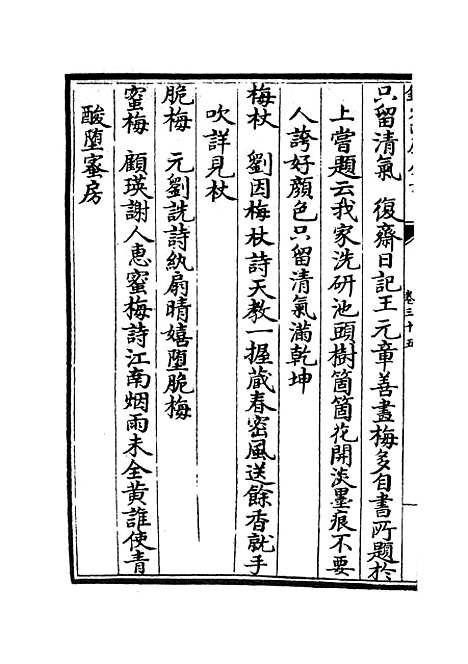 只留清氣　復齋日記王元章善畫梅多自書所題於
上嘗題云我家洗硏池頭樹箇箇花開淡墨痕不要
人誇好顔色只留清氣滿乾坤
梅杖　劉因梅杖詩天教一握蔵春密風送餘香就手
吹詳見杖
脆梅　元劉詵詩紈扇晴嬉墮脆梅
蜜梅　顧瑛謝人惠蜜梅詩江南烟雨未全黄誰使青
酸墮蜜房
卷三十五